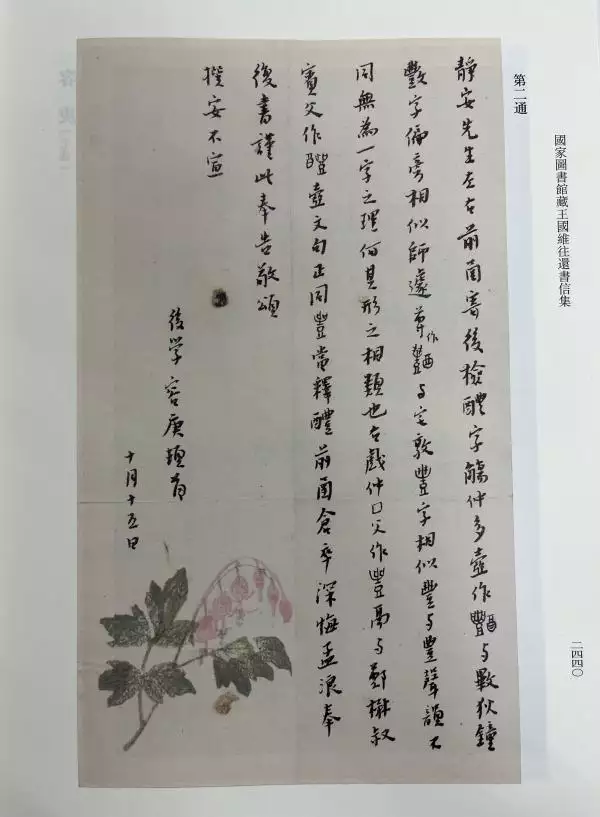 國家圖書館藏王國維往還書信集
二四四〇
第二通
靜安先生左右前函寄後檢醴字觴仲多壺作與狄鐘
字偏旁相似師遽尊作與宅敦豐字相似豊與豐聲韻不
同無為一字之理何其形之相類也右戲仲口父作豐鬲與鄭楙叔
賓父作醴壺文句正同豐當釋醴前函倉卒深悔孟浪奉
復書謹此奉告敬頌
撰安不宣
後學容庚頓首
十月十五日